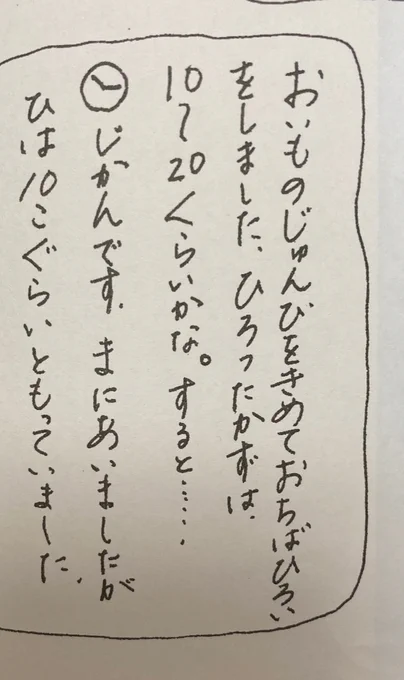 おいものじゅんびをきめておちばひろい
をしました、ひろったかずは、
10〜20くらいかな。すると……、
じかんです、まにあいましたが
ひは10こぐらいともっていました、